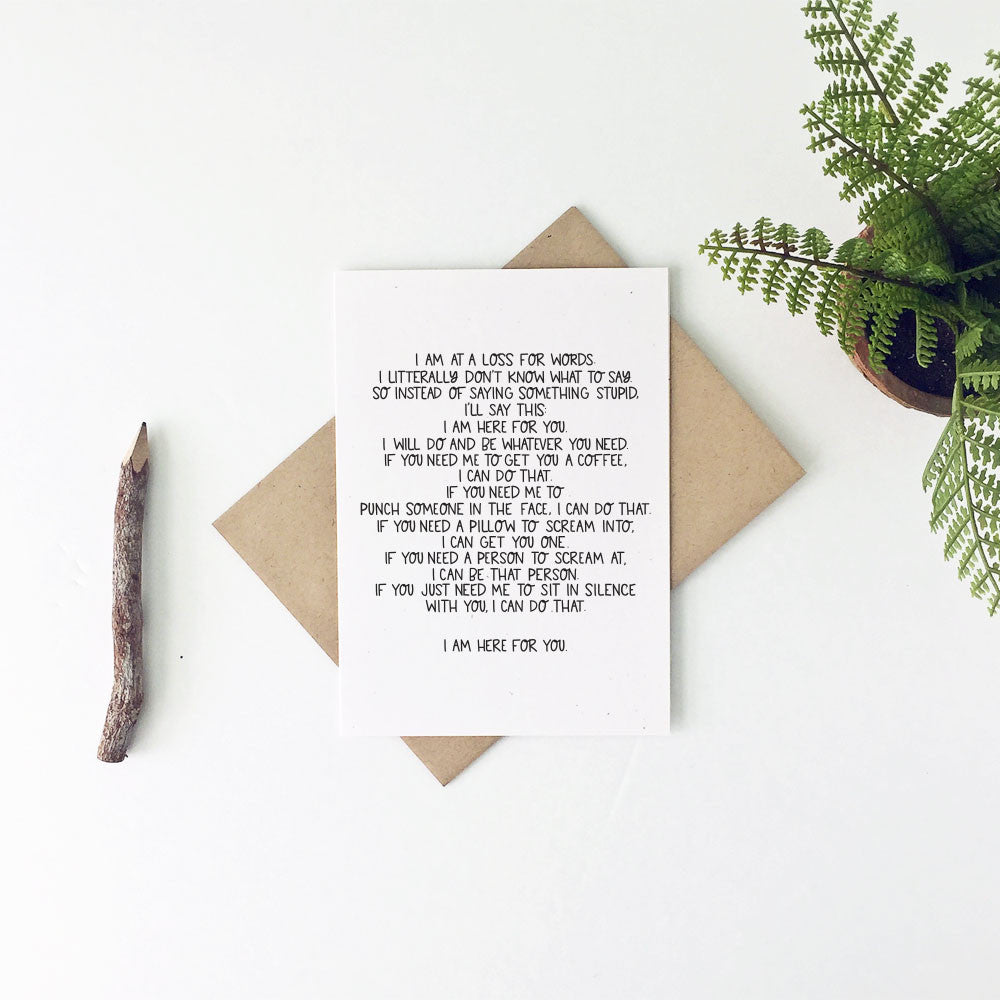 I AM AT A LOSS FOR WORDS.
I LITTERALLY DON'T KNOW WHAT TO SAY.
SO INSTEAD OF SAYING SOMETHING STUPID,
I'LL SAY THIS:
I AM HERE FOR YOU.
I WILL DO AND BE WHATEVER YOU NEED.
IF YOU NEED ME TO GET YOU A COFFEE,
I CAN DO THAT.
IF YOU NEED ME TO
PUNCH SOMEONE IN THE FACE, I CAN DO THAT.
IF YOU NEED A PILLOW TO SCREAM INTO,
I CAN GET YOU ONE.
IF YOU NEED A PERSON TO SCREAM AT,
I CAN BE THAT PERSON.
IF YOU JUST NEED ME TO SIT IN SILENCE
WITH YOU, I CAN DO THAT.
I AM HERE FOR YOU.